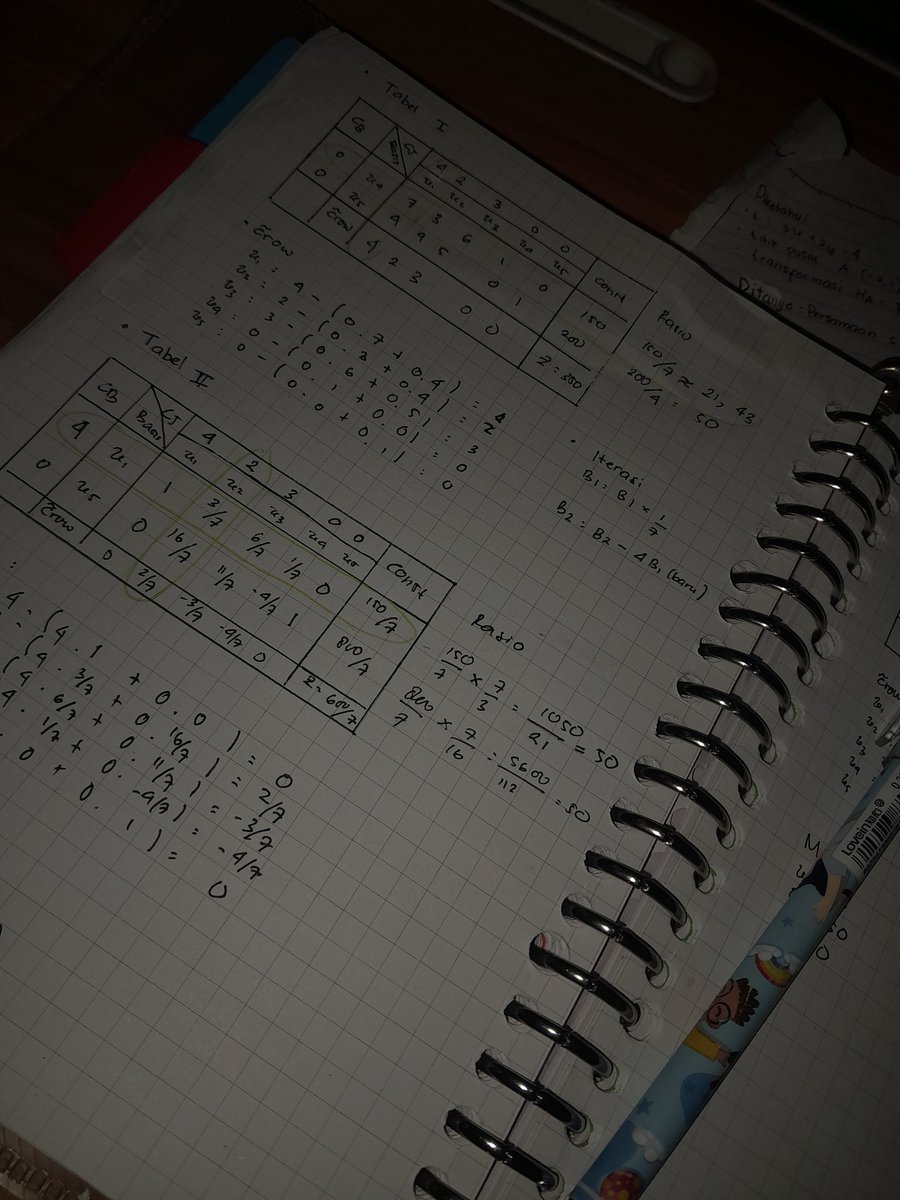 Tabel I
CB Basis CJ 4 2 3 0 0 Const Rasio
x1 x2 x3 x4 x5
0 x4 7 3 6 1 0 150 150/7 ≈ 21,43
0 x5 4 4 5 0 1 200 200/4 = 50
C̄row 4 2 3 0 0 Z = 350
• C̄row
x1 = 4 - (0.7 + 0.4) = 4
x2 = 2 - (0.3 + 0.4) = 2
x3 = 3 - (0.6 + 0.5) = 3
x4 = 0 - (0.1 + 0.0) = 0
x5 = 0 - (0.0 + 0.1) = 0
• Iterasi
B1 = B1 × 1/7
B2 = B2 - 4B1 (baru)
• Tabel II
CB Basis CJ 4 2 3 0 0 Const Rasio
x1 x2 x3 x4 x5
4 x1 1 3/7 6/7 1/7 0 150/7
0 x5 0 16/7 11/7 -4/7 1 800/7
C̄row 0 2/7 -3/7 -4/7 0 Z = 600/7
150/7 × 7/3 = 1050/21 = 50
800/7 × 7/16 = 5600/112 = 50
4 - (4.1 + 0.0) = 0
(4.3/7 + 0.16/7) = 2/7
(4.6/7 + 0.11/7) = -3/7
4.1/7 + 0.-4/7) = -4/7
0 + 0.1) = 0
Diketahui
3x + 2y = 4
titik pusat A (-2,1
transformasi HA
Ditanya : Persamaan
C̄row
x1
x2
x3
x4
x5